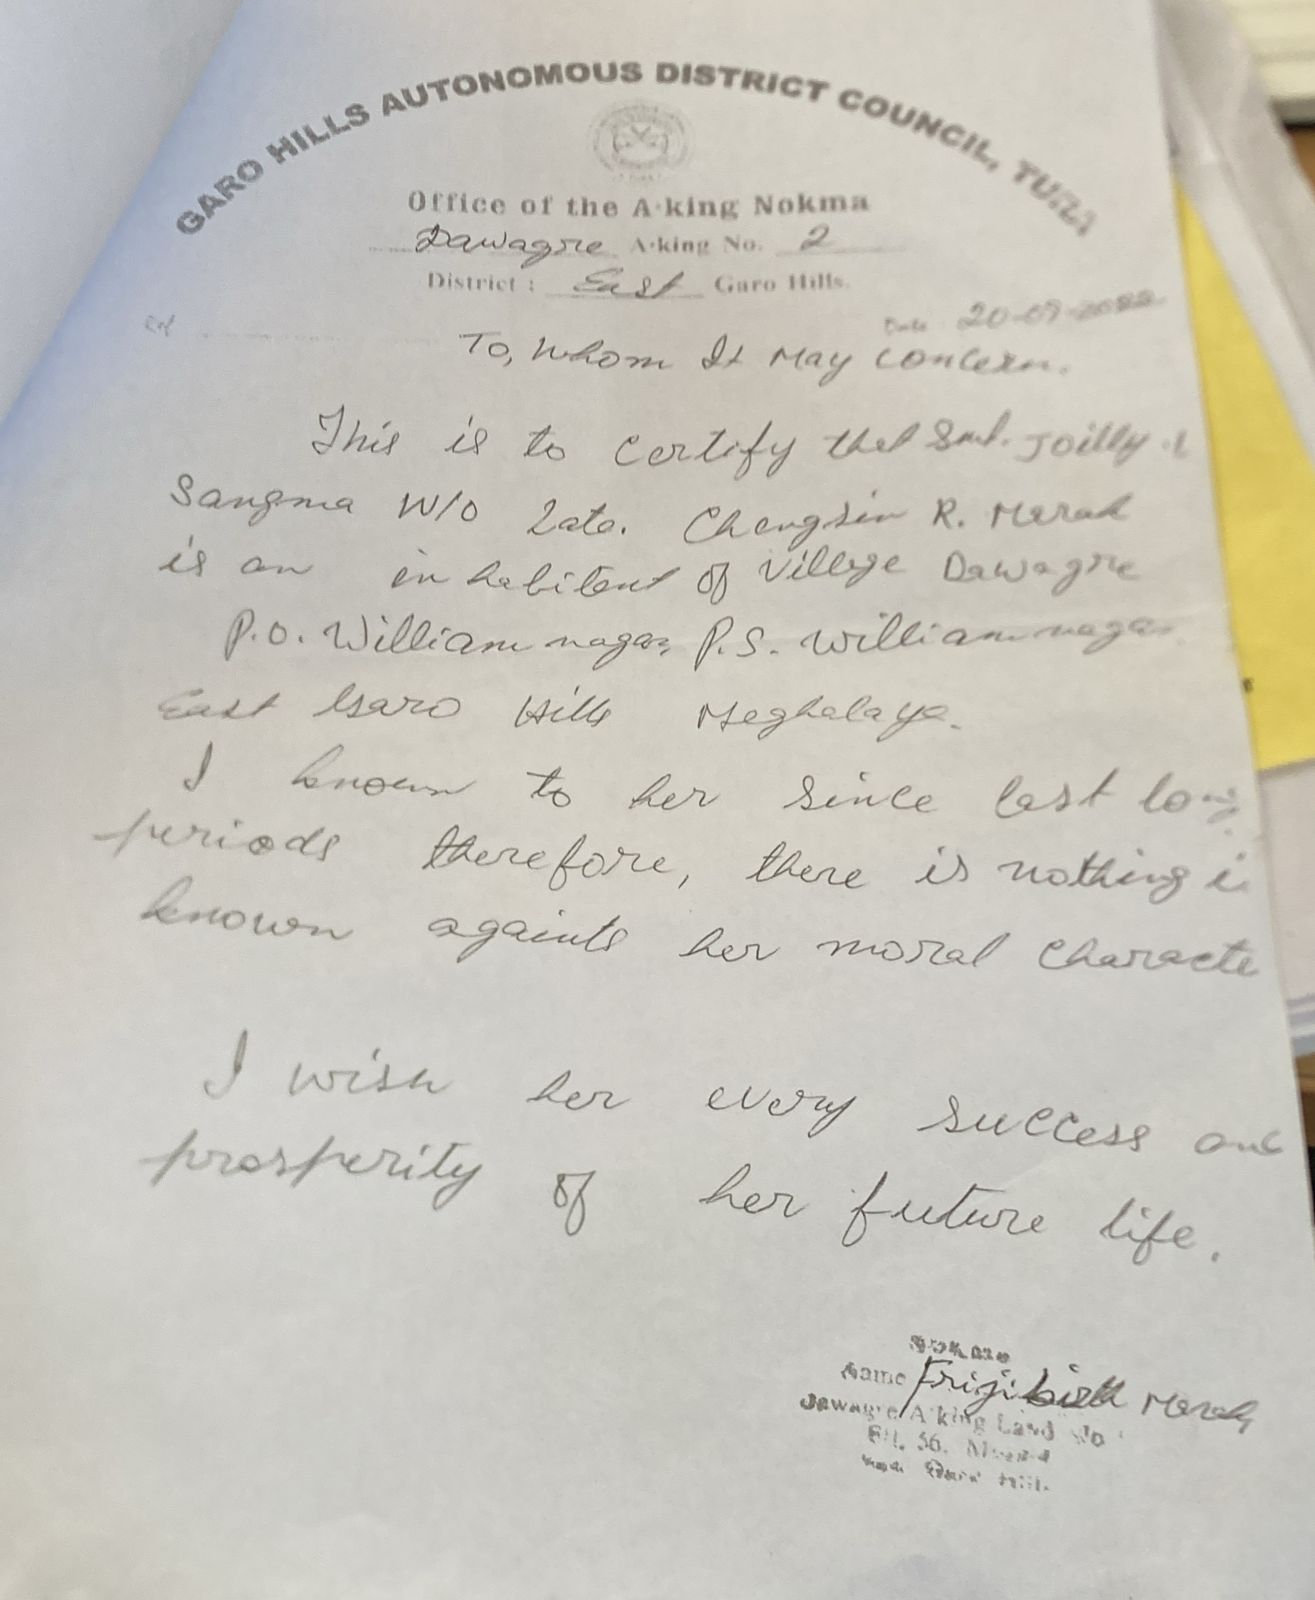 GARO HILLS AUTONOMOUS DISTRICT COUNCIL, TURA
Office of the A·king Nokma
Dawagre A·king No. 2
District : East Garo Hills.
Date 20-09-2022
To, Whom It May Concern.
This is to certify that Smt. Joilly
Sangma W/O Late. Chengsin R. Marak
is an inhabitent of Village Dawagre
P.O. Williamnagar, P.S. Williamnagar
East Garo Hills Meghalaya.
I known to her since last long
periods therefore, there is nothing i
known againts her moral characte
I wish her every success and
prosperity of her future life.
Name Frijibirth Marak
Dawagre A'king Land No